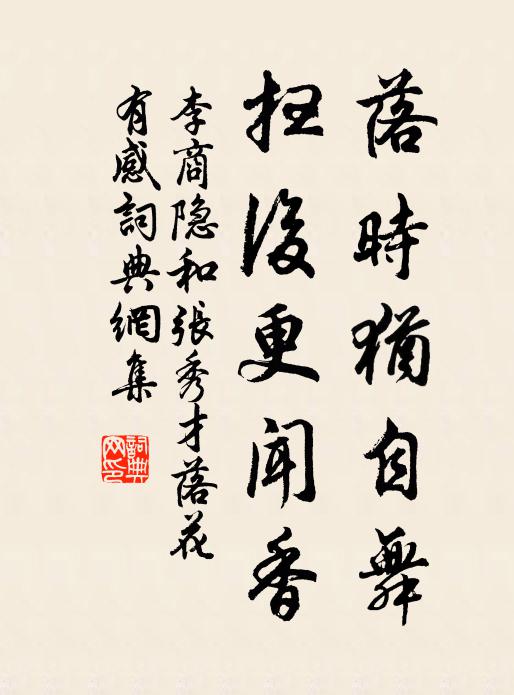 落時猶自舞
掃後更聞香
李商隐和張秀才落花
有感詞典網集
詞典网印